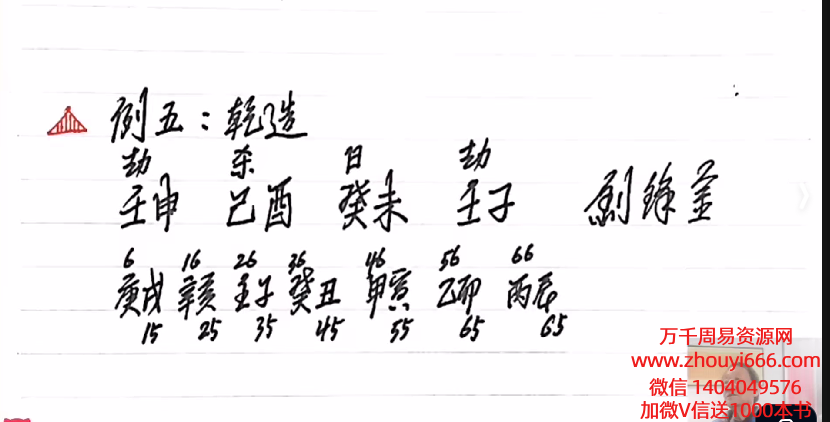 例五：乾造
劫 杀 日 劫
壬申 己酉 癸未 壬子 剑锋金
6 16 26 36 46 56 66
庚戌 辛亥 壬子 癸丑 甲寅 乙卯 丙辰
15 25 35 45 55 65 65
万千周易资源网
www.zhouyi666.com
微信 1404049576
加微V信送1000本书